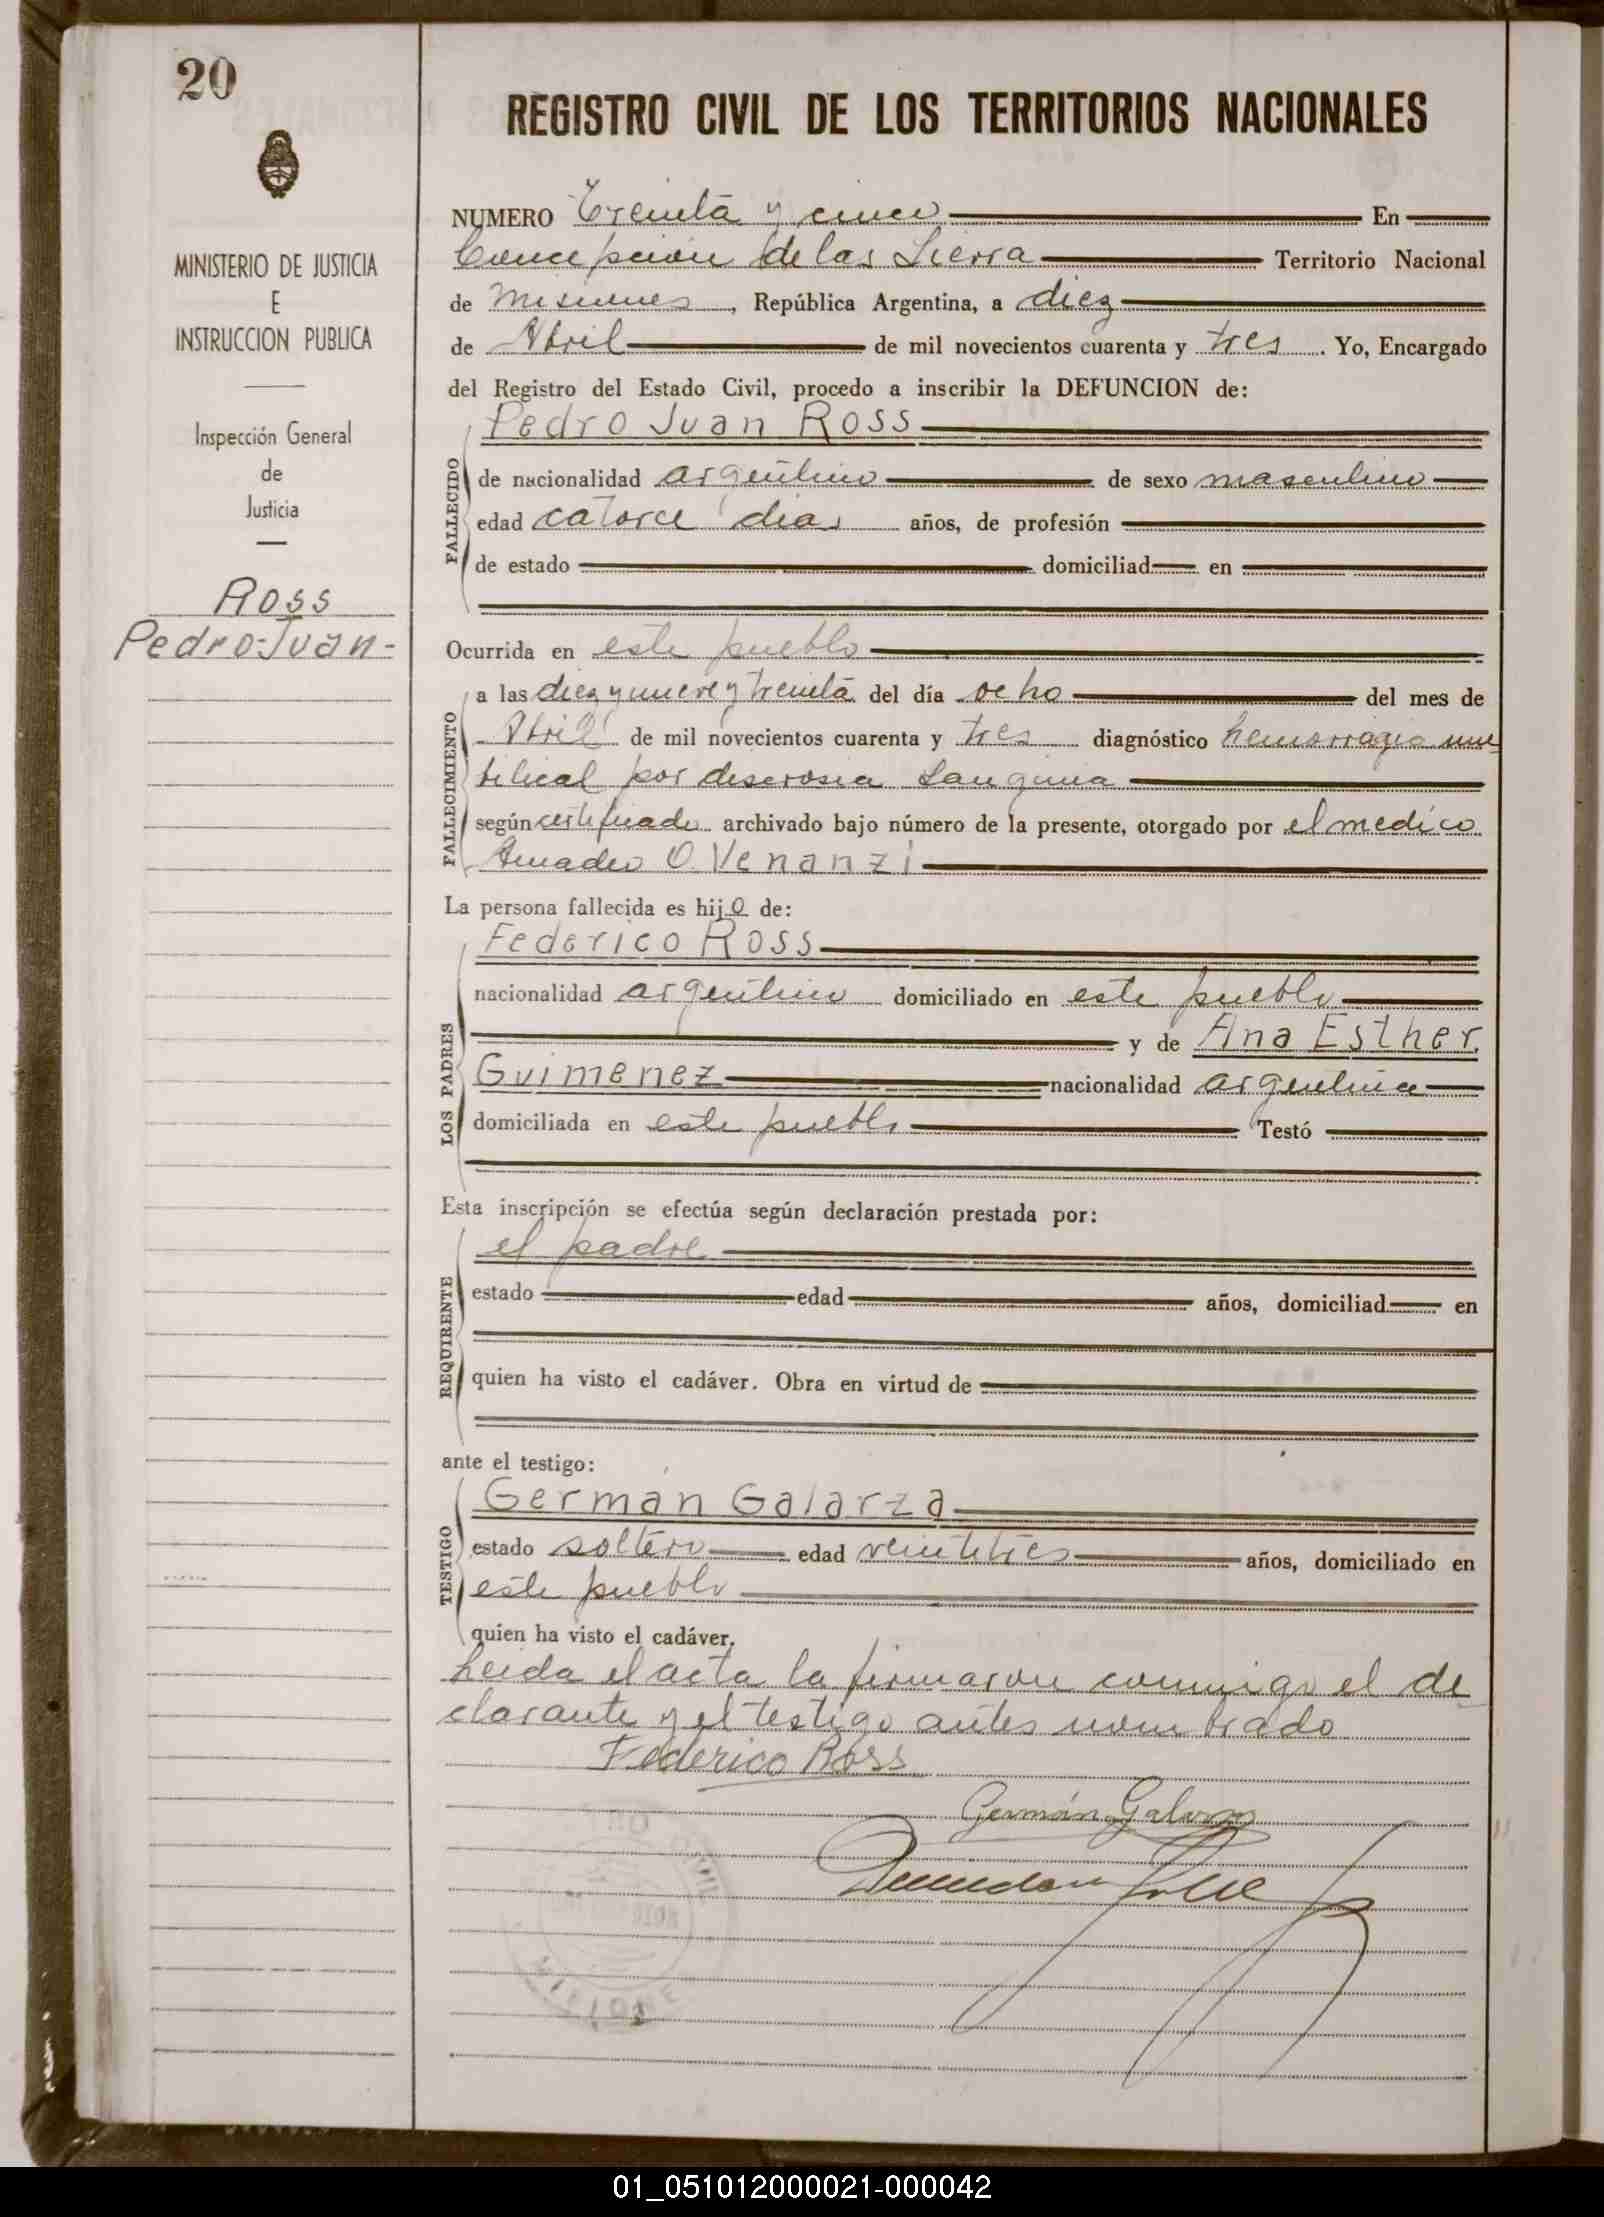 20
MINISTERIO DE JUSTICIA
E
INSTRUCCION PUBLICA
Inspección General
de
Justicia
Ross
Pedro-Juan-
REGISTRO CIVIL DE LOS TERRITORIOS NACIONALES
NUMERO Treinta y cinco En
Concepción de las Sierra Territorio Nacional
de Misiones, República Argentina, a diez
de Abril de mil novecientos cuarenta y tres. Yo, Encargado
del Registro del Estado Civil, procedo a inscribir la DEFUNCION de:
Pedro Juan Ross
FALLECIDO
de nacionalidad argentino de sexo masculino
edad catorce dias años, de profesión
de estado domiciliad en
Ocurrida en este pueblo
FALLECIMIENTO
a las diez y nueve y treinta del día ocho del mes de
Abril de mil novecientos cuarenta y tres diagnóstico hemorragia um
bilical por discrasia sanguinea
según certificado archivado bajo número de la presente, otorgado por el medico
Amadeo O. Venanzi
La persona fallecida es hijo de:
LOS PADRES
Federico Ross
nacionalidad argentino domiciliado en este pueblo
y de Ana Esther
Guimenez nacionalidad argentina
domiciliada en este pueblo Testó
Esta inscripción se efectúa según declaración prestada por:
REQUIRENTE
el padre
estado edad años, domiciliad en
quien ha visto el cadáver. Obra en virtud de
ante el testigo:
TESTIGO
Germán Galarza
estado soltero edad veintitres años, domiciliado en
este pueblo
quien ha visto el cadáver.
Leida el acta la firmaron conmigo el de
clarante y el testigo antes nombrado
Federico Ross
Germán Galarza
01_051012000021-000042